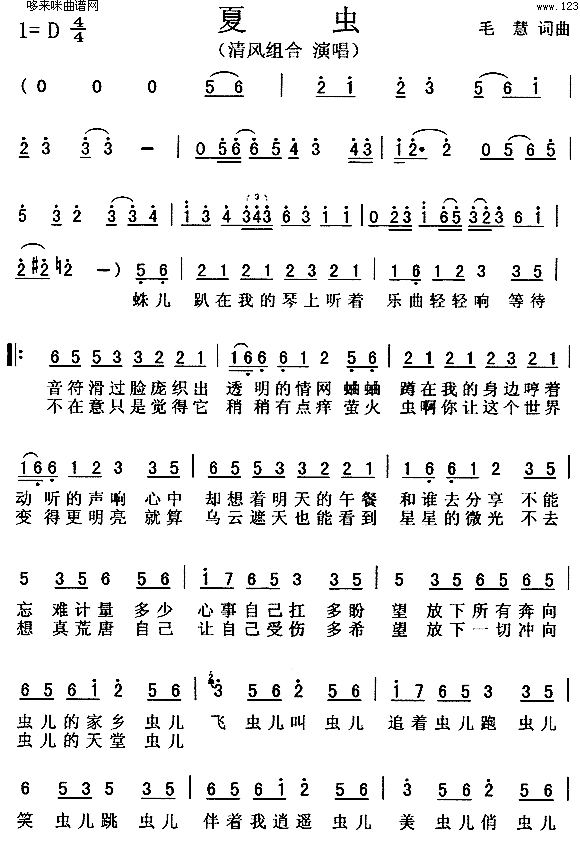 哆来咪曲谱网
www.123
夏 虫
1= D 4/4
毛 慧 词曲
（清风组合 演唱）
(0 0 0 5 6 | 2 1 2 3 5 6 1 |
2 3 3 3 — | 0 5 6 6 5 4 3 4 3 | 1 2· 2 0 5 6 5 |
5 3 2 3 3 4 | 1 3 4 3 4 3 6 3 1 1 | 0 2 3 1 6 5 3 2 3 6 1 |
2 #2 ♮2 —) 5 6 | 2 1 2 1 2 3 2 1 | 1 6 1 2 3 3 5 |
蛛儿 趴在我的琴上听着 乐曲轻轻响 等待
6 5 5 3 3 2 2 1 | 1 6 6 6 1 2 5 6 | 2 1 2 1 2 3 2 1 |
音符滑过脸庞织出 透明的情网 蛐蛐 蹲在我的身边哼着
不在意只是觉得它 稍稍有点痒 萤火 虫啊你让这个世界
1 6 6 1 2 3 3 5 | 6 5 5 3 3 2 2 1 | 1 6 6 1 2 3 5 |
动听的声响 心中 却想着明天的午餐 和谁去分享 不能
变得更明亮 就算 乌云遮天也能看到 星星的微光 不去
5 3 5 6 5 6 | 1 7 6 5 3 3 5 | 5 3 5 6 5 6 5 |
忘 难计量 多少 心事自己扛 多盼 望 放下所有奔向
想 真荒唐 自己 让自己受伤 多希 望 放下一切冲向
6 5 6 1 2 5 6 | 3 5 6 5 5 6 | 1 7 6 5 3 3 5 |
虫儿的家乡 虫儿 飞 虫儿叫 虫儿 追着虫儿跑 虫儿
虫儿的天堂 虫儿
6 5 3 5 3 5 | 6 5 6 1 2 5 6 | 3 5 6 2 5 6 |
笑 虫儿跳 虫儿 伴着我逍遥 虫儿 美 虫儿俏 虫儿